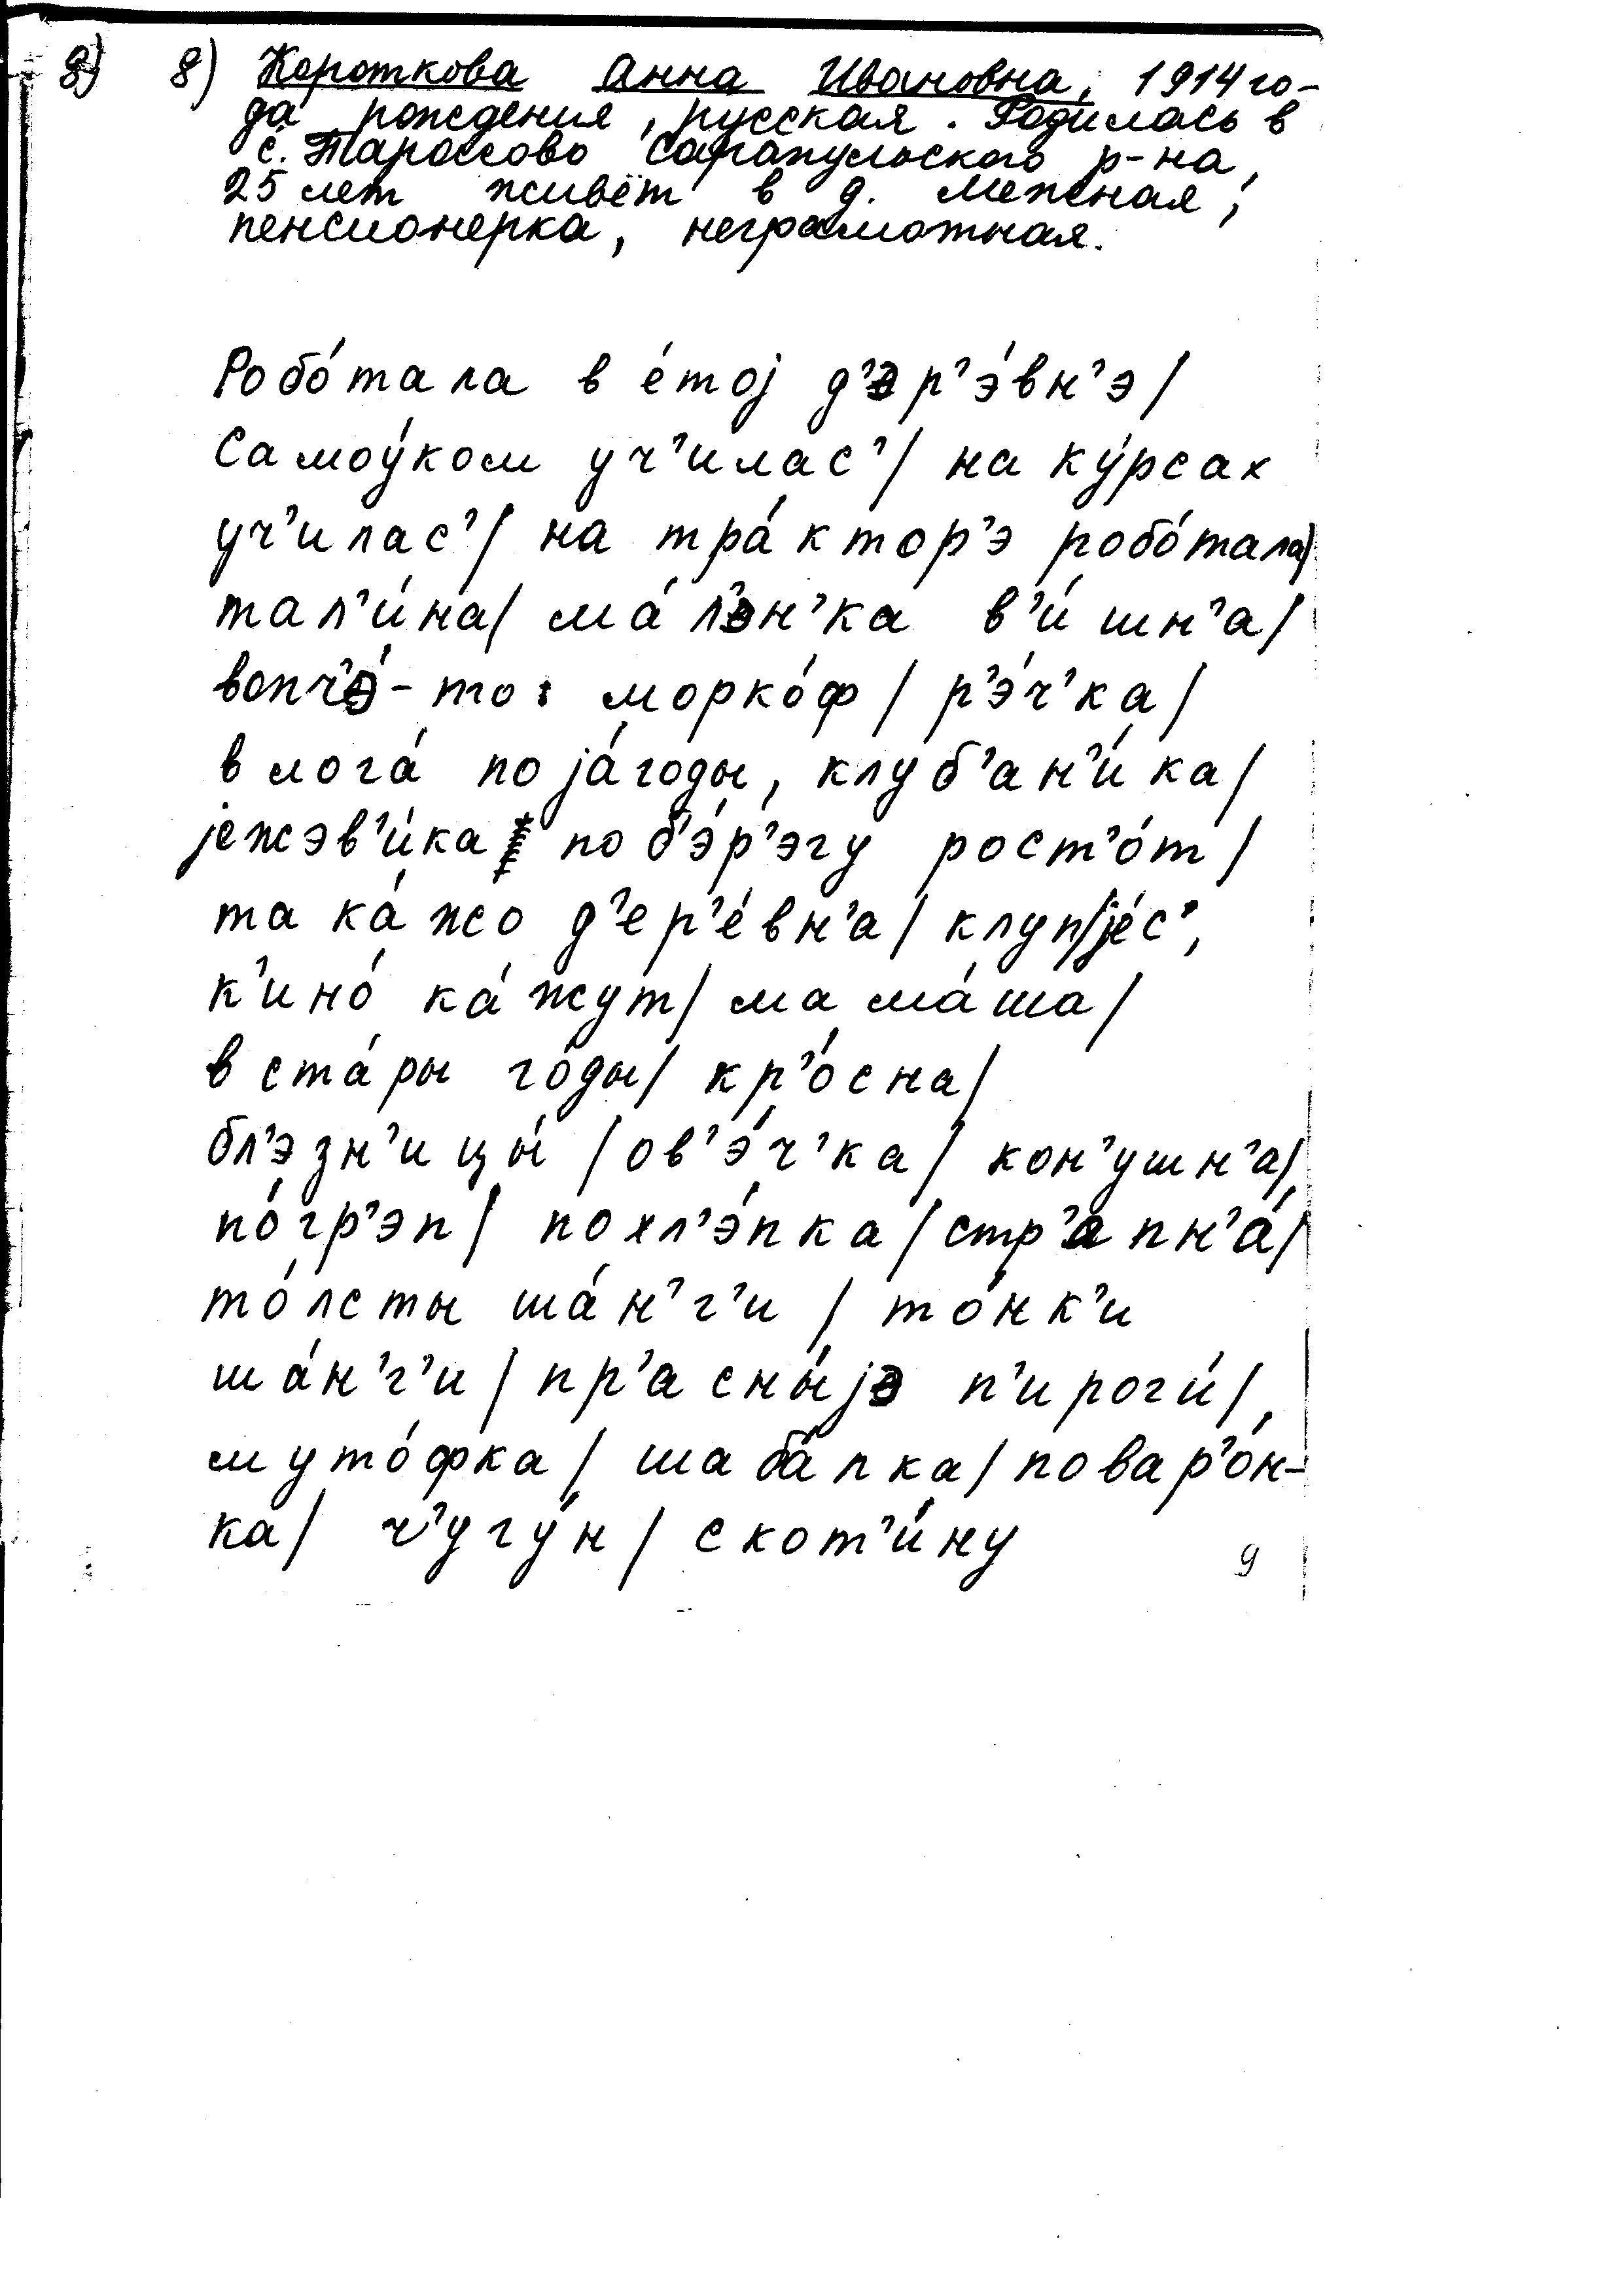 8) 8) Короткова Анна Ивановна, 1914 го-
да рождения, русская. Родилась в
с. Тарассово Сарапульского р-на,
25 лет живёт в д. Межная,
пенсионерка, неграмотная.
Робо́тала в е́тоj д'эр'э́вн'э/
Самоу́ком уч'илас'/ на ку́рсах
уч'илас'/ на тра́ктор'э робо́тала/
тал'и́на/ ма́л'эн'ка в'и́шн'а/
вопч'э́-то: морко́ф/ р'э́ч'ка/
в лога́ по jа́годы, клуб'ан'и́ка/
jежэв'и́ка по б'э́р'эгу рост'о́т/
та ка́жо д'ер'е́вн'а/ клуп/jе́с',
к'ино́ ка́жут/ мама́ша/
в ста́ры го́ды/ кр'о́сна/
бл'эзн'ицы́/ ов'э́ч'ка/ кон'ушн'а/
по́гр'эп/ похл'э́пка/ стр'апн'а́/
то́лсты ша́н'г'и/ то́нк'и
ша́н'г'и/ пр'асны́jэ п'ироги́/,
муто́фка/ шаба́лка/ повар'о́н-
ка/ ч'угу́н/ скот'и́ну
9